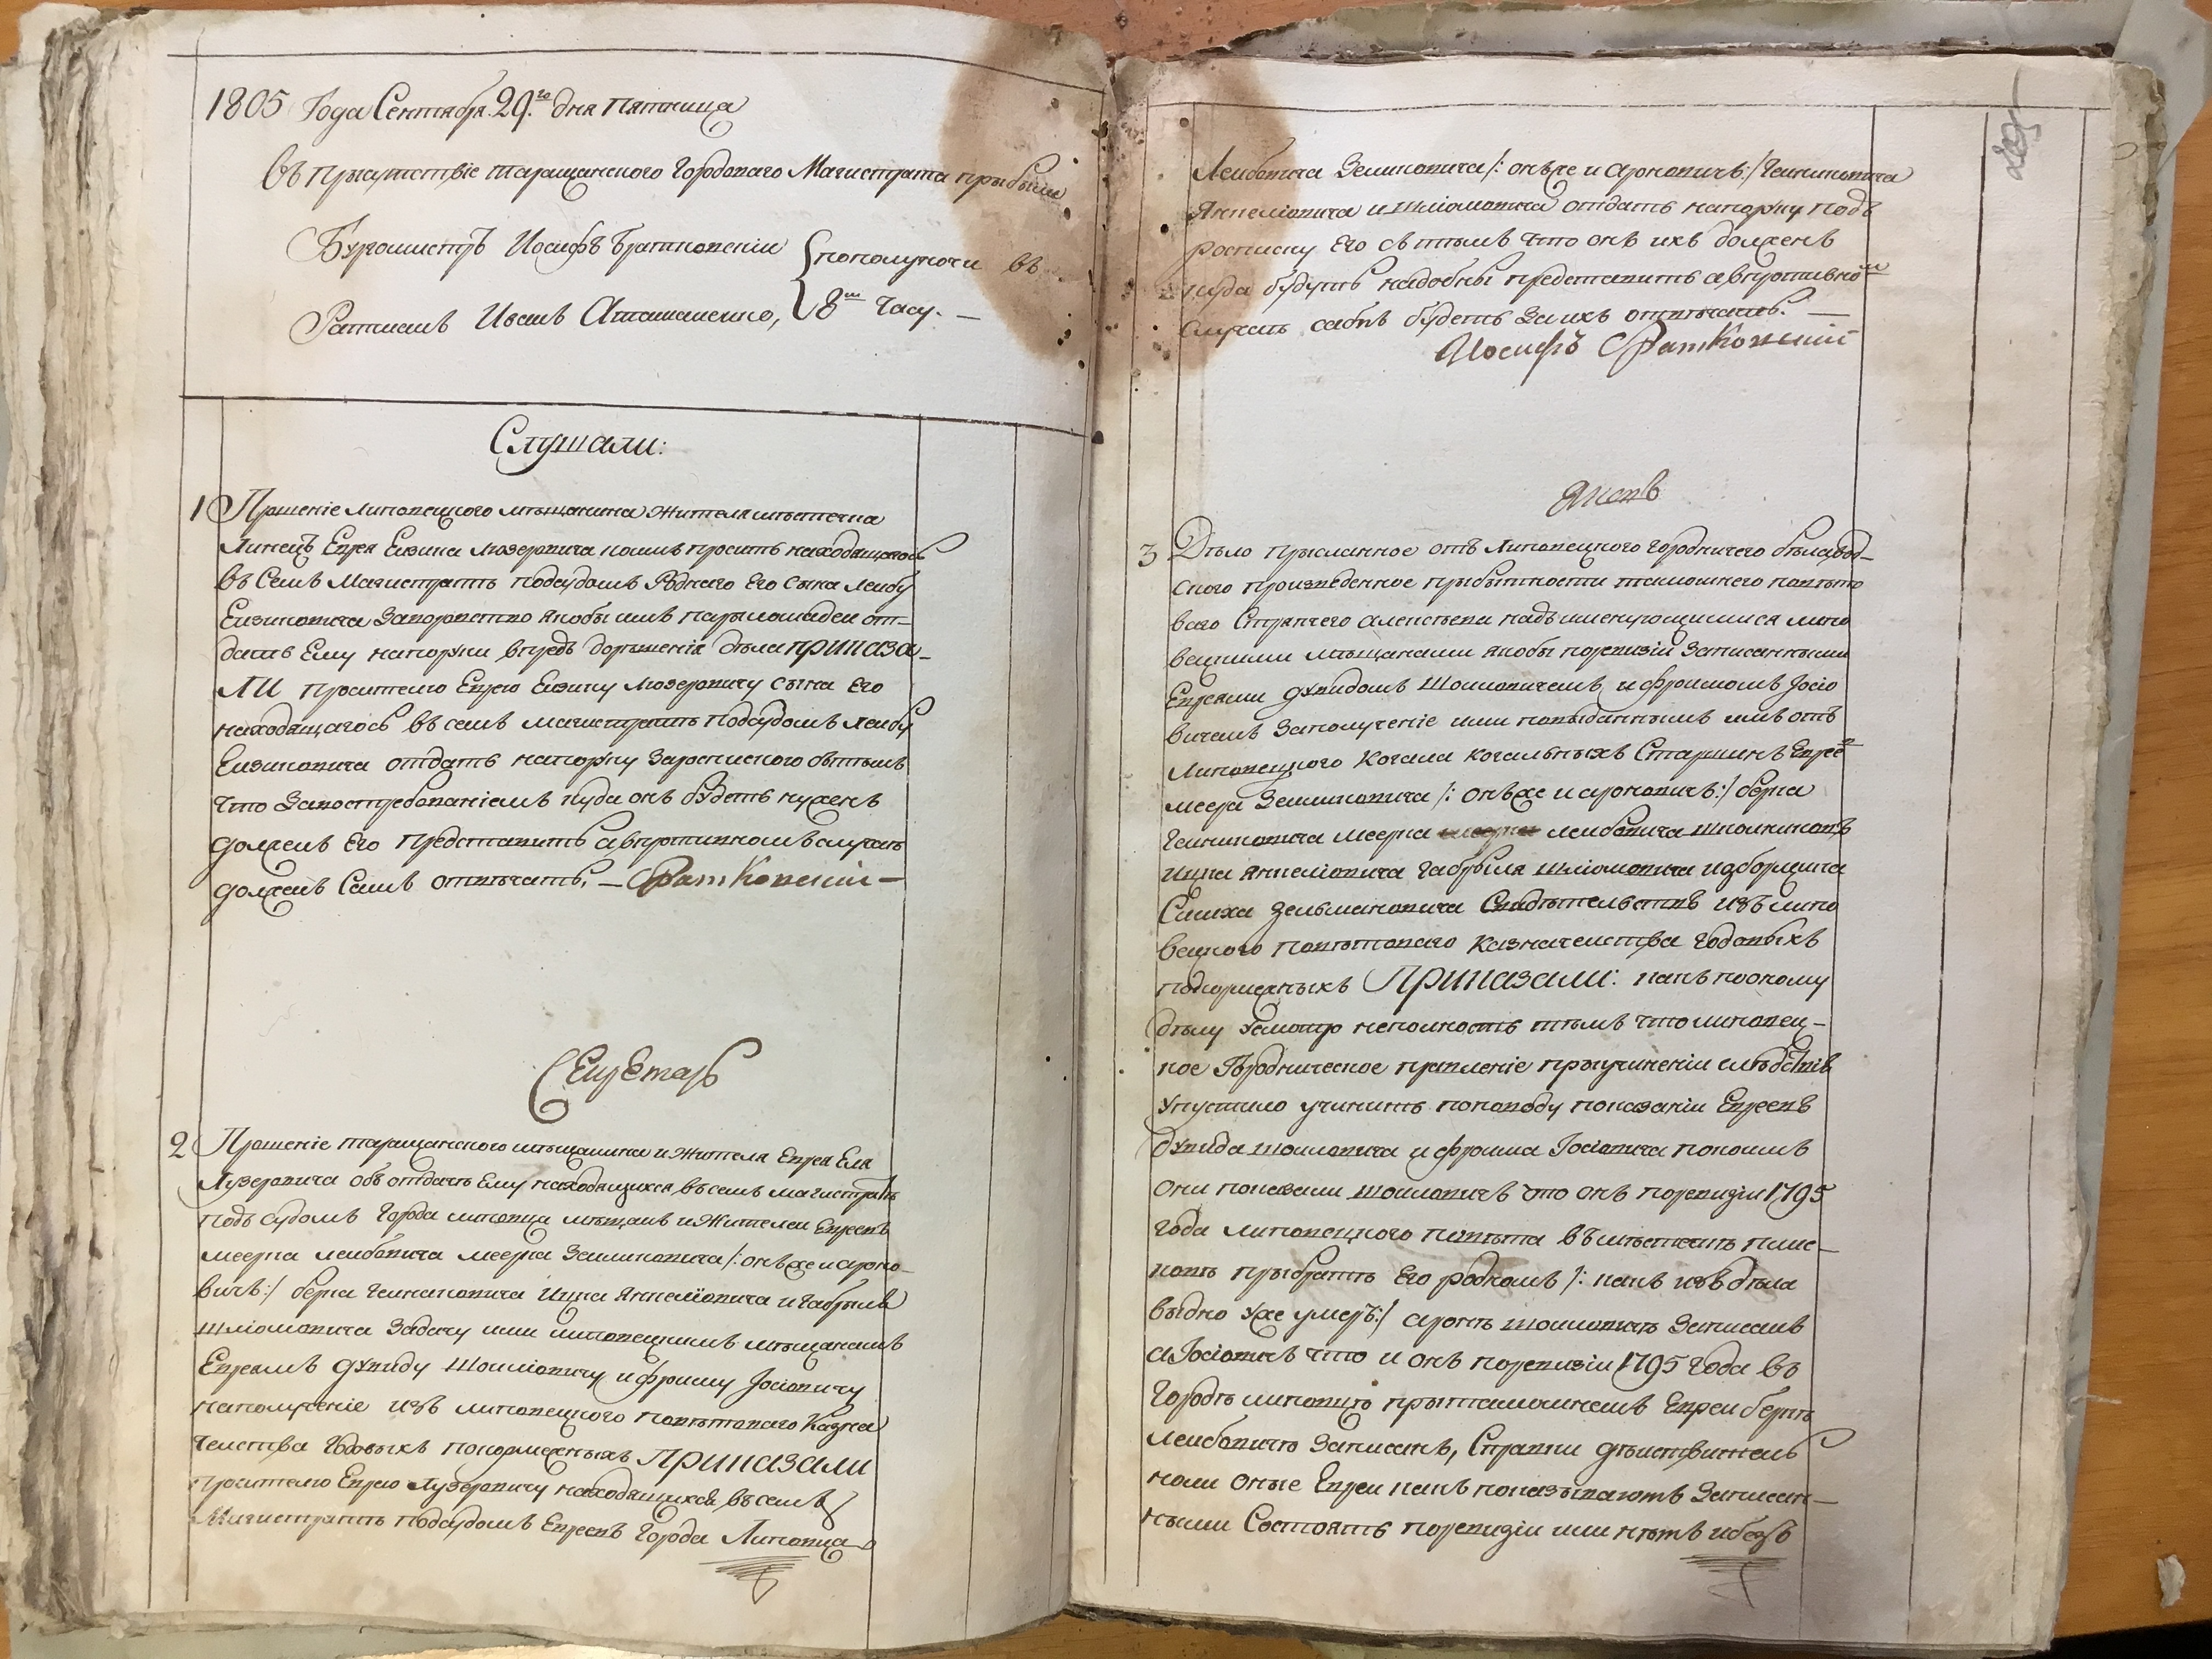 1805 Года Сентября 29го дня пятница
Въ присутствіе таращанского городоваго Магистрата прибыли
Бургомистръ Иосифъ Братковскіи
Ратманъ Иванъ Аташаненко,
пополуночи въ
8м часу. —
Слушали:
1 Прошеніе липовецкого мѣщанина жителя мѣстечка
Линецъ Еврея Ейзика Лозеровича коимъ проситъ находящагось
въ Семъ Магистратѣ подсудомъ роднаго Его сына Лейбу
Ейзиковича Заворовство якобы имъ пары лошадей от-
дать Ему напоруки впредь дорѣшенія дѣла приказа-
ли просителю Еврею Ейзику Лозеровичу сына Его
находящагось въ семъ магистратѣ подсудомъ Лейбу
Ейзиковича отдать напоруку Заросписского стѣмъ
что Завостребованіемъ куда онъ будетъ нуженъ
долженъ Его представить авпротивномъ случаѣ
долженъ Самъ отвѣчать. — Братковскіи —
Секретарь
2 Прошеніе таращанского мѣщанина и жителя Еврея Ела
Лузеровича объ отдачѣ Ему находящихся въ семъ магистратѣ
подъ судомъ города липовца мѣщанъ и жителей Евреевъ
меерка лейбовича меерка Зеликовича /: онъже и ароно-
вичъ:/ берка гейнаховича Ицка Янкеліовича и габрыля
шліомовича Задачу ими липовецкимъ мѣщанамъ
Евреямъ дувиду шоиліовичу и фроиму Іосіовичу
наполученіе изъ липовецкого повѣтоваго Казна
чейства годовыхъ покормежныхъ Приказали
просителю Еврею Лузеровичу находящихся въ семъ
Магистратѣ подсудомъ Евреевъ города Липовца
Лейбовича Зеликовича /: онъже и ароновичъ:/ гейниковича
Янкеліовича и шліомовича отдать напоруку подъ
росписку Его съ тѣмъ что онъ ихъ долженъ
куда будутъ надобны представить авпротивном
случаѣ самъ будетъ за ихъ отвѣчать. —
Иосифъ Братковскіи
3 Дѣло присланное отъ липовецкого городничего
ского произведенное прибытности тамошнего повѣто
ваго Стряпчего алексѣева надъ именующимися липо
вецкими мѣщанами якобы поревизіи Записанными
Евреями дувидомъ шоиловичемъ и фроимомъ Іосіо
вичемъ Заполученіе ими повыданнымъ имъ отъ
Липовецкого Когала когальныхъ Старшинъ Еврее
меера Зеликовича /: онъже и ароновичъ:/ берка
гейниковича меерка лейбовича шполниковъ
ицка янкеліовича габрыля шліомовича изборщика
Симха Зельмановича Свидѣтельствъ изъ липо
вецкого повѣтоваго Казначейства годовыхъ
покормежныхъ Приказали: какъ пооному
дѣлу неполность тѣмъ что липовец-
кое Городническое правленіе приучиненіи слѣдствія
упустило учинить поповоду показаніи Евреевъ
дувида шоиловича и фроима Іосіовича покоимъ
они показали шоиловичъ что онъ поревизіи 1795
года липовецкого повѣта въ мѣстечкѣ плис-
ковѣ прибратѣ Его родномъ /: какъ изъ дѣла
выдно уже умеръ:/ аронѣ шоиловичѣ Записанъ
а Іосіовичъ что и онъ поревизіи 1795 года въ
городѣ липовцѣ притамошнемъ Евреи беркѣ
лейбовичѣ Записанъ, Справки дѣиствительно
ноли оные Евреи какъ показываютъ Записан-
ными Состоятъ поревизіи или нѣтъ ибезъ